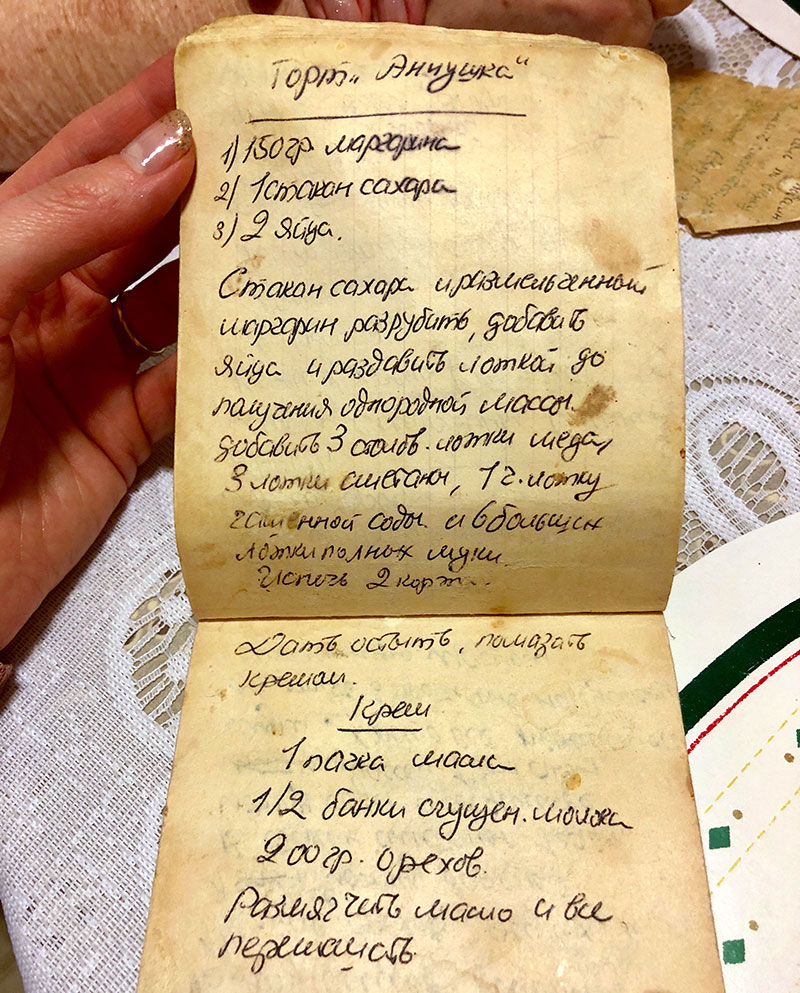 Торт „Аннушка“
1) 150гр. маргарина
2) 1 стакан сахара
3) 2 яйца.
Стакан сахара и размельченный
маргарин разрубить, добавить
яйца и раздавить ложкой до
получения однородной массы.
Добавить 3 столов. ложки меда,
3 ложки сметаны, 1 ч. ложку
гашенной соды. и 6 больших
ложки полных муки.
Испечь 2 корж..
Дать остыть, помазать
кремом.
Крем
1 пачка масла
1/2 банки сгущен. молока
200гр. орехов.
Размягчить масло и все
перемешать.